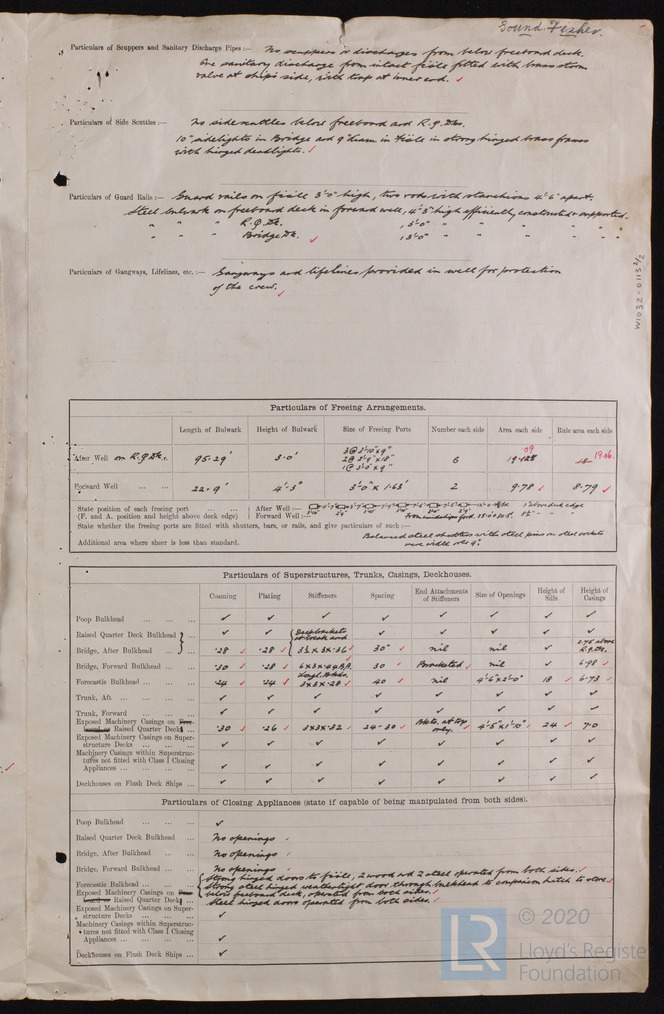 Sound Fisher.
Particulars of Scuppers and Sanitary Discharge Pipes :— No scuppers or discharges from below freeboard deck.
One sanitary discharge from intact fo'c'sle fitted with brass storm
valve at ship's side, with trap at inner end.
Particulars of Side Scuttles :— No sidescuttles below freeboard and R.Q. Dks.
10" sidelights in Bridge and 9" diam. in fo'c'sle in strong hinged brass frames
with hinged deadlights.
Particulars of Guard Rails :— Guard rails on fo'c'sle 3'-0" high, two rods with stanchions 4'-6" apart.
Steel bulwark on freeboard deck in forward well, 4'-3" high efficiently constructed & supported.
" " " R.Q. Dk. , 3'-0" " " " "
" " " Bridge Dk. , 3'-0" " " " "
Particulars of Gangways, Lifelines, etc. :— Gangways and lifelines provided in well for protection
of the crew.
W1032-0113 2/2
Particulars of Freeing Arrangements.
Length of Bulwark Height of Bulwark Size of Freeing Ports Number each side Area each side Rule area each side
After Well on R.Q. Dk. 95.29' 3.0' 3 @ 3'-10" x 9" 6
Forward Well ... ... 22.9' 4'-3" 3'-0" x 1.63' 2 9.78 8.79
State position of each freeing port ... ... After Well :—
(F. and A. position and height above deck edge) Forward Well :—
State whether the freeing ports are fitted with shutters, bars, or rails, and give particulars of such :—
Balanced steel shutters with steel pins in steel sockets
Additional area where sheer is less than standard.
Particulars of Superstructures, Trunks, Casings, Deckhouses.
Coaming Plating Stiffeners Spacing End Attachments of Stiffeners Size of Openings Height of Sills Height of Casings
Poop Bulkhead ... ... ...
Raised Quarter Deck Bulkhead ... Deep brackets at break and
Bridge, After Bulkhead ... ... .28 .28 3½ x 3 x .36 30" nil nil R.Q. Dk.
Bridge, Forward Bulkhead ... ... .30 .28 30 Bracketed nil 6.98
Forecastle Bulkhead ... ... .24 .24 3 x 3 x .28 40 nil 4'-6" x 2'-0" 18 6.73
Trunk, Aft ... ... ...
Trunk, Forward ... ... ...
Exposed Machinery Casings on Freeboard or Raised Quarter Decks ... .30 .26 3 x 3 x .32 24-30 Bkts. at top only. 4'-5" x 1'-10" 24 7.0
Exposed Machinery Casings on Superstructure Decks ... ... ...
Machinery Casings within Superstructures not fitted with Class I Closing Appliances ... ... ...
Deckhouses on Flush Deck Ships ...
Particulars of Closing Appliances (state if capable of being manipulated from both sides).
Poop Bulkhead ... ... ...
Raised Quarter Deck Bulkhead ... No openings
Bridge, After Bulkhead ... ... No openings
Bridge, Forward Bulkhead ... ... No openings
Forecastle Bulkhead ... ... Strong hinged doors to fo'c'sle, 2 wood and 2 steel operated from both sides.
Strong steel hinged weathertight door through bulkhead to companion hatch to store
below freeboard deck, operated from both sides.
Exposed Machinery Casings on Freeboard or Raised Quarter Deck ... Steel hinged doors operated from both sides.
Exposed Machinery Casings on Superstructure Decks ... ... ...
Machinery Casings within Superstructures not fitted with Class I Closing Appliances ... ... ...
Deckhouses on Flush Deck Ships ...
LR © 2020
Lloyd's Register
Foundation